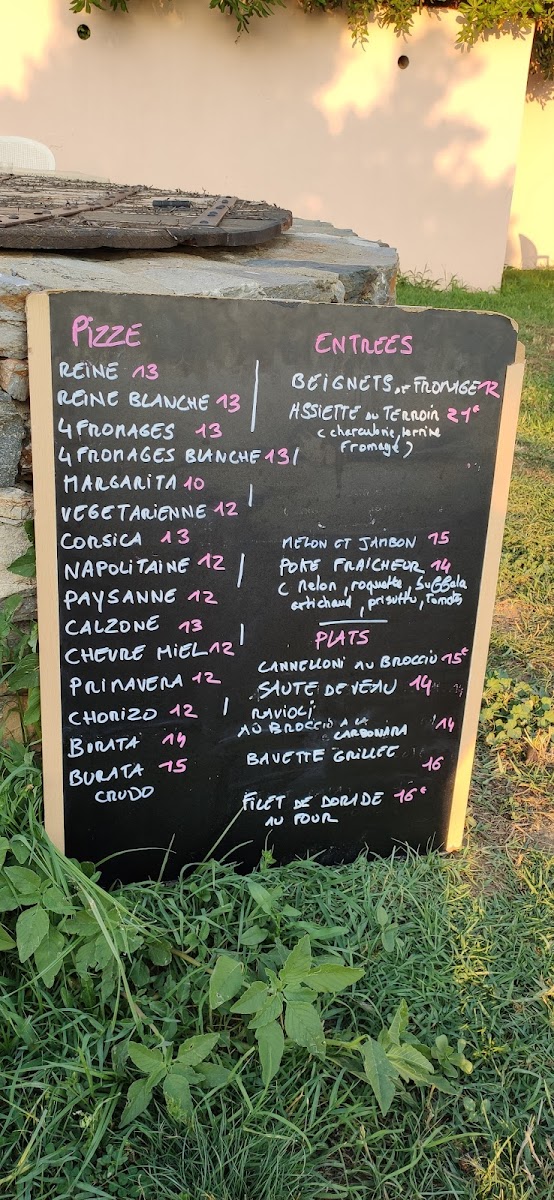 PIZZE
REINE 13
REINE BLANCHE 13
4 FROMAGES 13
4 FROMAGES BLANCHE 13
MARGARITA 10
VEGETARIENNE 12
CORSICA 13
NAPOLITAINE 12
PAYSANNE 12
CALZONE 13
CHEVRE MIEL 12
PRIMAVERA 12
CHORIZO 12
BURATA 14
BURATA 15
CRUDO
ENTREES
BEIGNETS AU FROMAGE 12
ASSIETTE DU TERROIR 21€
( charcuterie, terrine
Fromage )
MELON ET JAMBON 15
POKE FRAICHEUR 14
( Melon, roquette, buffala
artichaud, prisuttu, Tomates
PLATS
CANNELLONI AU BROCCIU 15€
SAUTE DE VEAU 14
RAVIOLI
AU BROCCIU A LA
CARBONARA 14
BAVETTE GRILLEE
16
FILET DE DORADE 16€
AU FOUR